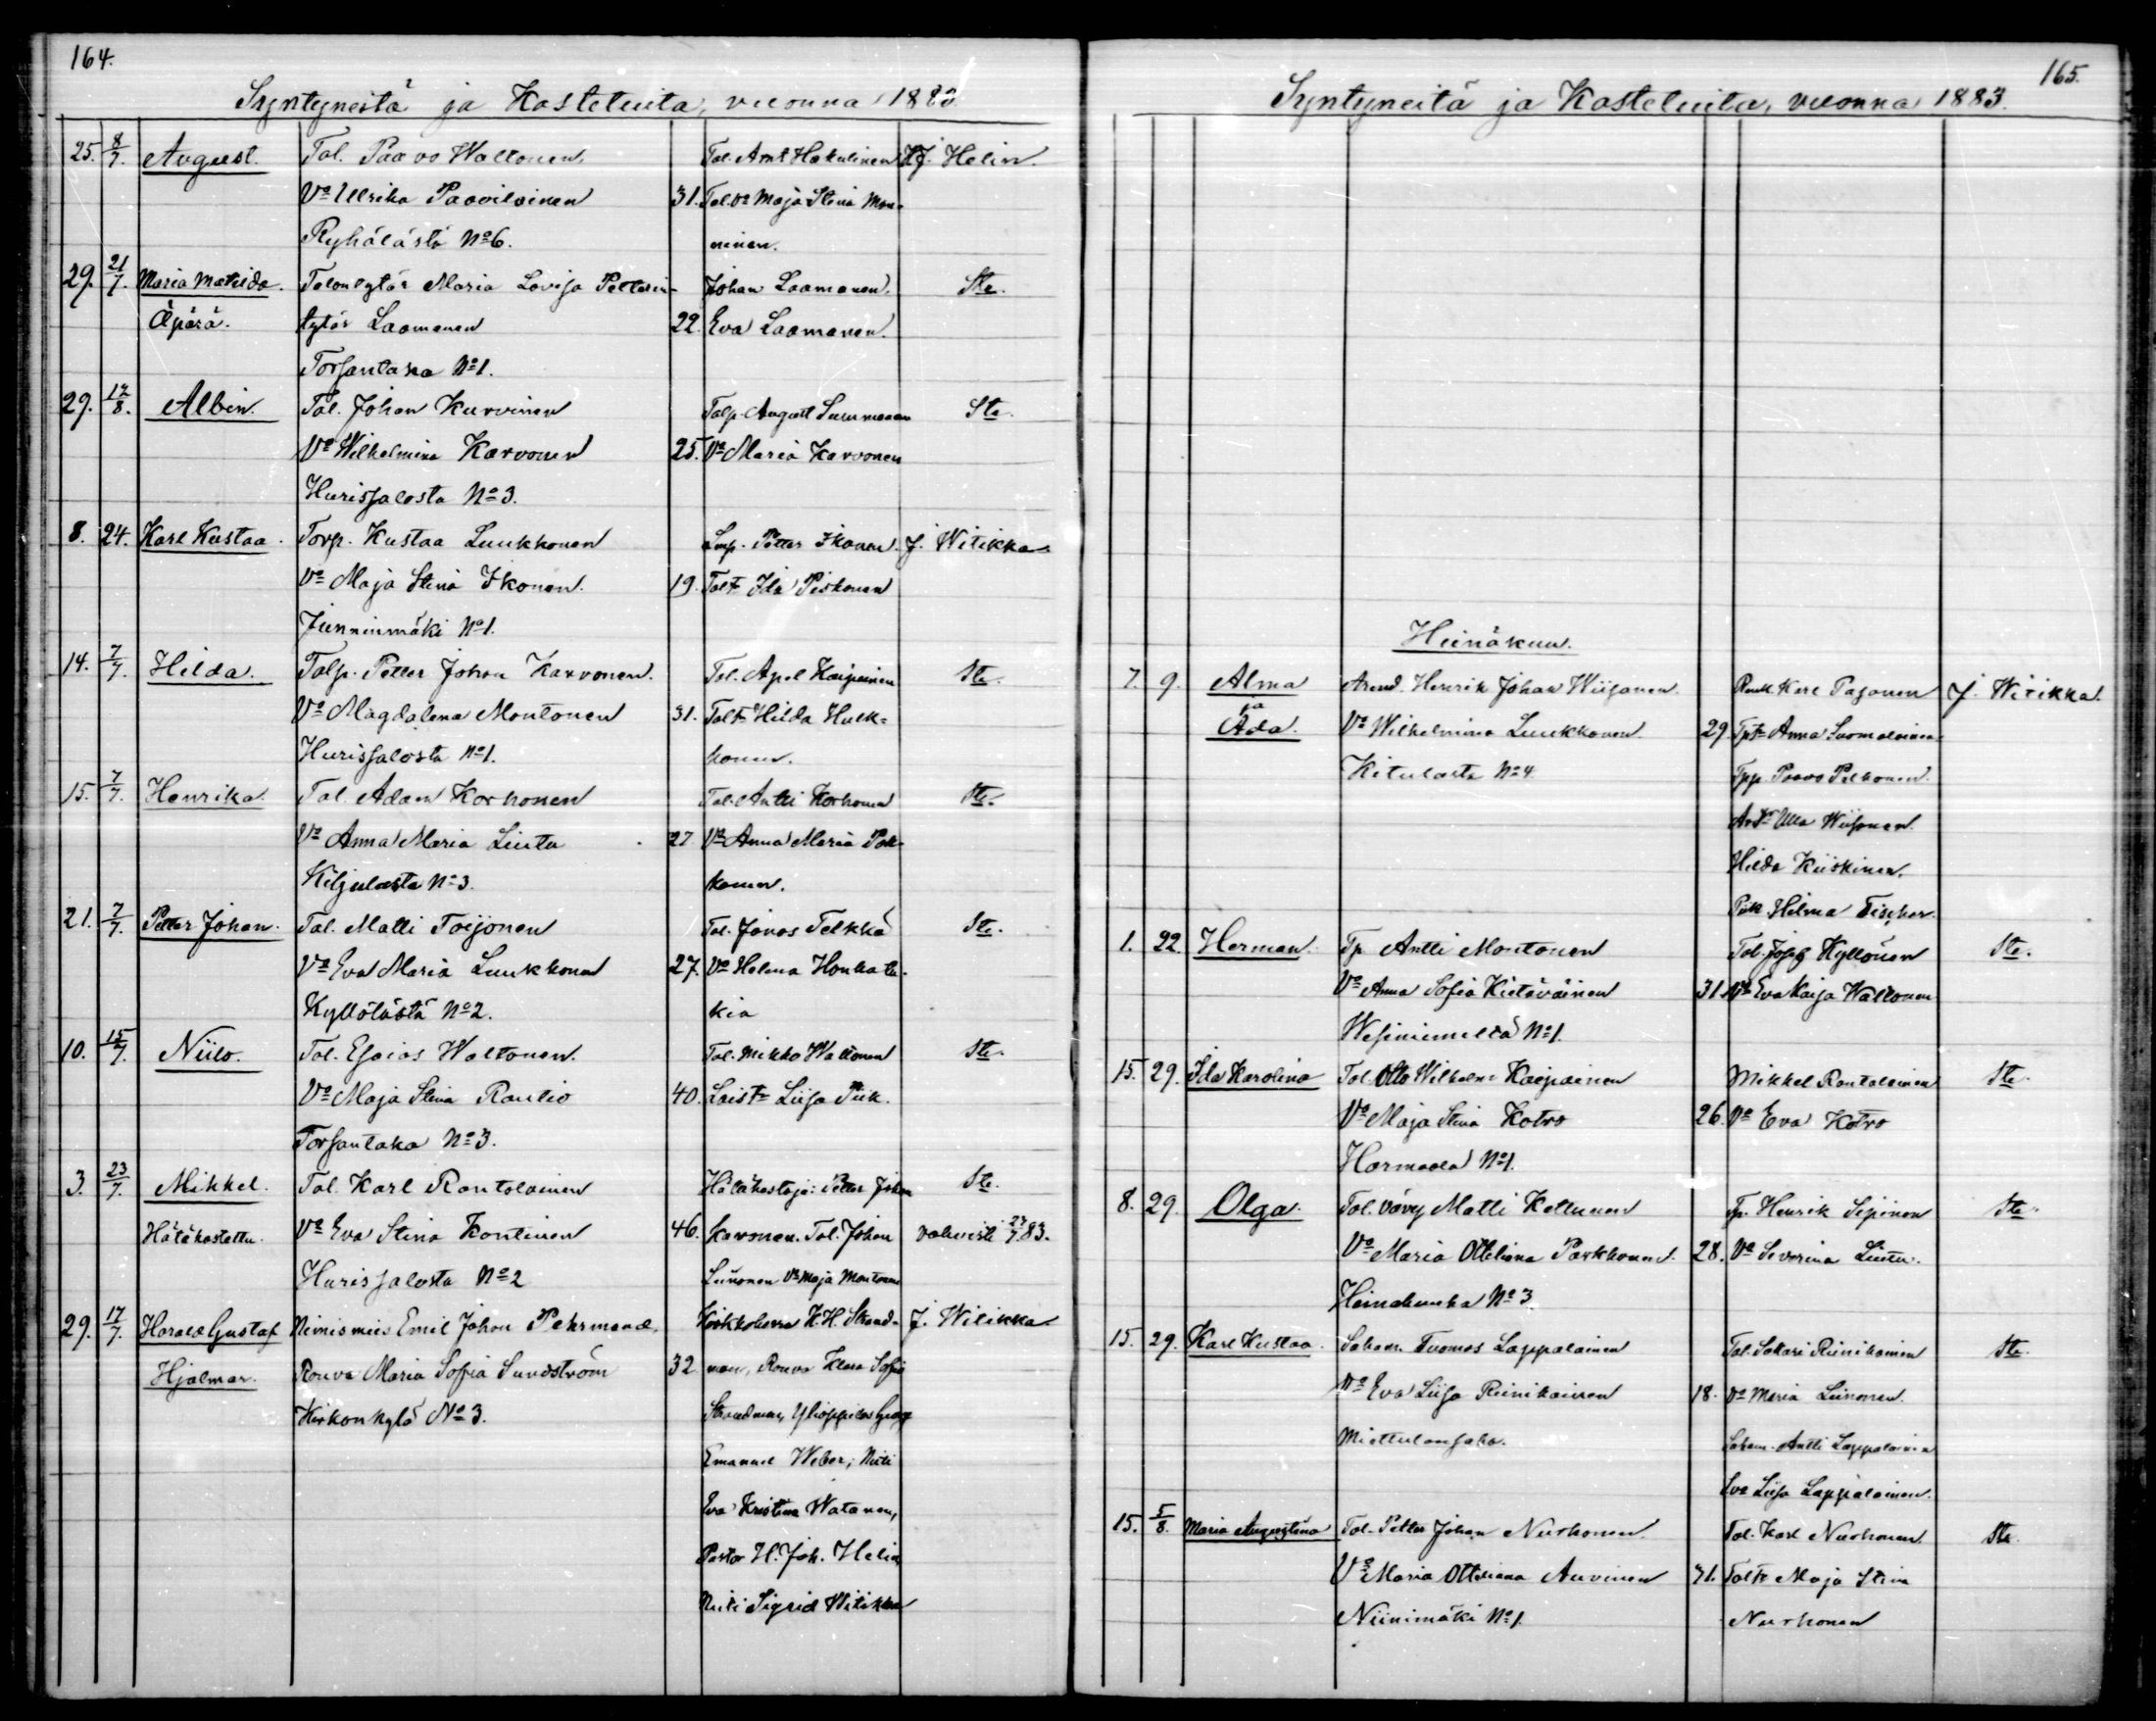 164.
Syntyneitä ja Kastetuita, vuonna 1883
25. 8/7. August. Tal. Paavo Waltonen. Tal. Ant. Hakulinen H.J. Helin.
Vo Ulrika Paavilainen 31. Tal. vo Maja Stina Mon-
Ryhälästä No 6. ninen.
29. 21/7. Maria Matilda. Talontytär Maria Lovisa Petterin- Johan Laamanen. Ste.
Äpärä. tytär Laamanen 22. Eva Laamanen.
Torsantaka No 1.
29. 12/8. Albin. Tal. Johan Kurvinen Talp. August Summanen Ste.
Vo Wilhelmina Karvonen 25. Vo Maria Karvonen
Hurissalosta No 3.
8. 24. Karl Kustaa. Torp. Kustaa Luukkonen Lmp. Petter Ikonen. J. Witikka
Vo Maja Stina Ikonen. 19. Tal tr Ida Piskonen
Junninmäki No 1.
14. 7/7. Hilda. Talp. Petter Johan Karvonen. Tal. Apel Kaipainen Ste.
Vo Magdalena Montonen 31. Tal tr Hilda Hulk-
Hurissalosta No 1. konen.
15. 7/7. Henrika. Tal. Adam Korhonen Tal. Antti Korhonen Ste.
Vo Anna Maria Lintu 27 Vo Anna Maria Pak-
Kiljulasta No 3. konen.
21. 7/7. Petter Johan. Tal. Matti Toijonen Tal. Jonas Telkkä Ste.
Vo Eva Maria Luukkonen 27. Vo Helena Honkatu-
Kyllölästä No 2. kia
10. 15/7. Niilo. Tal. Esaias Waltonen. Tal. Mikko Waltonen Ste.
Vo Maja Stina Rautio 40. Lois tr Liisa Piik.
Torsantaka No 3.
3. 23/7. Mikkel. Tal. Karl Rantalainen Hätäkastaja: Petter Johan Ste.
Hätäkastettu. Vo Eva Stina Kontinen 46. Karvonen. Tal. Johan vahvisti 23/7 83.
Hurissalosta No 2 Leinonen Vo Maja Montonen
29. 17/7. Harald Gustaf Nimismies Emil Johan Pehrmand. Kirkkoherra K. H. Strand- J. Witikka
Hjalmar. Rouva Maria Sofia Sundström 32 man, Rouva Klara Sofia
Kirkonkylä No 3. Strandman, Ylioppilas Georg
Emanuel Weber, Neiti
Eva Kristina Watanen,
Pastor H. Joh. Helin
Neiti Sigrid Witikka
165.
Syntyneitä ja Kastetuita, vuonna 1883.
Heinäkuu.
7. 9. Alma Arend. Henrik Johan Wiisanen. Renk. Karl Pasonen J. Witikka.
ja
Ada. Vo Wilhelmina Luukkonen. 29. Tp tr Anna Suomalainen.
Kitulasta No 4. Tpp. Paavo Pelkonen.
Ar tr Ulla Wiisanen.
Hilda Kiiskinen.
Piik. Helma Fischer.
1. 22. Herman. Tp. Antti Montonen Tal. Josef Kyllönen Ste.
Vo Anna Sofia Kietäväinen 31. Vo Eva Kaisa Waltonen
Wesiniemeltä No 1.
15. 29. Ida Karolina Tal. Otto Wilhelm Kaipainen Mikkel Rantalainen Ste.
Vo Maja Stina Kotro 26. Vo Eva Kotro
Harmaala No 1.
8. 29. Olga. Tal. vävy Matti Kettunen Tp. Henrik Sipinen Ste.
Vo Maria Ottiliana Parkkonen. 28. Vo Severina Lintu.
Hamalunka No 3
15. 29. Karl Kustaa. Saham. Tuomas Lappalainen Tal. Sakari Riinikainen Ste.
Vo Eva Liisa Riinikainen 18. Vo Maria Leinonen.
Miettulansaha. Saham. Antti Lappalainen
Eva Liisa Lappalainen.
15. 5/8. Maria Augustina Tal. Petter Johan Nurhonen. Tal. Karl Nurhonen Ste.
Vo Maria Ottiliana Auvinen 31. Tal tr Maja Stina
Niinimäki No 1. Nurhonen